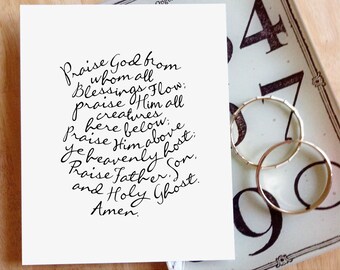 Praise God from
whom all
Blessings Flow;
praise Him all
creatures
here below;
Praise Him above
ye heavenly host;
Praise Father, Son,
and Holy Ghost.
Amen.
54
7
69